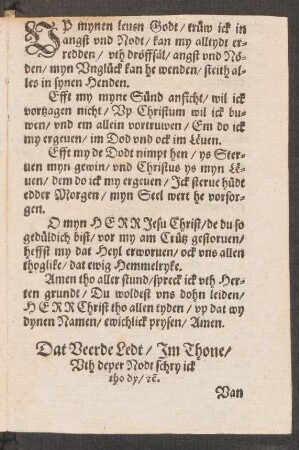 VP mynen leuen Godt/ trüw ick in
angst vnd Nodt/ kan my alltydt er-
redden/ vth dröffsäl/ angst vnd Nö-
den/ myn Vnglück kan he wenden/ steith al-
les in synen Henden.
Efft my myne Sünd anficht/ wil ick
vorzagen nicht/ Vp Christum wil ick bu-
wen/ vnd em allein vortruwen/ Em do ick
my ergeuen/ im Dod vnd ock im Leuen.
Efft my de Dodt nimpt hen/ ys Ster-
uen myn gewin/ vnd Christus ys myn Lé-
uen/ dem do ick my ergeuen/ Ick sterue hüdt
edder Morgen/ myn Seel wert he vorsor-
gen.
O myn HERR Jesu Christ/ de du so
gedüldich bist/ vor my am Crütz gestoruen/
heffst my dat Heyl erworuen/ ock vns allen
thoglike/ dat ewig Hemmelryke.
Amen tho aller stund/ spreck ick vth Her-
ten grundt/ Du woldest vns dohn leiden/
HERR Christ tho allen tyden/ vp dat wy
dynen Namen/ ewichlick prysen/ Amen.
Dat Veerde Ledt/ Im Thone/
Vth deper Nodt schry ick
tho dy/ ꝛc.
Van